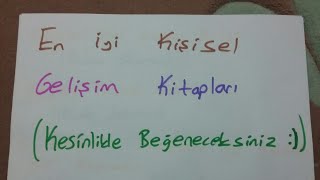 En iyi Kişisel
Gelişim Kitapları
(Kesinlikle Beğeneceksiniz :))